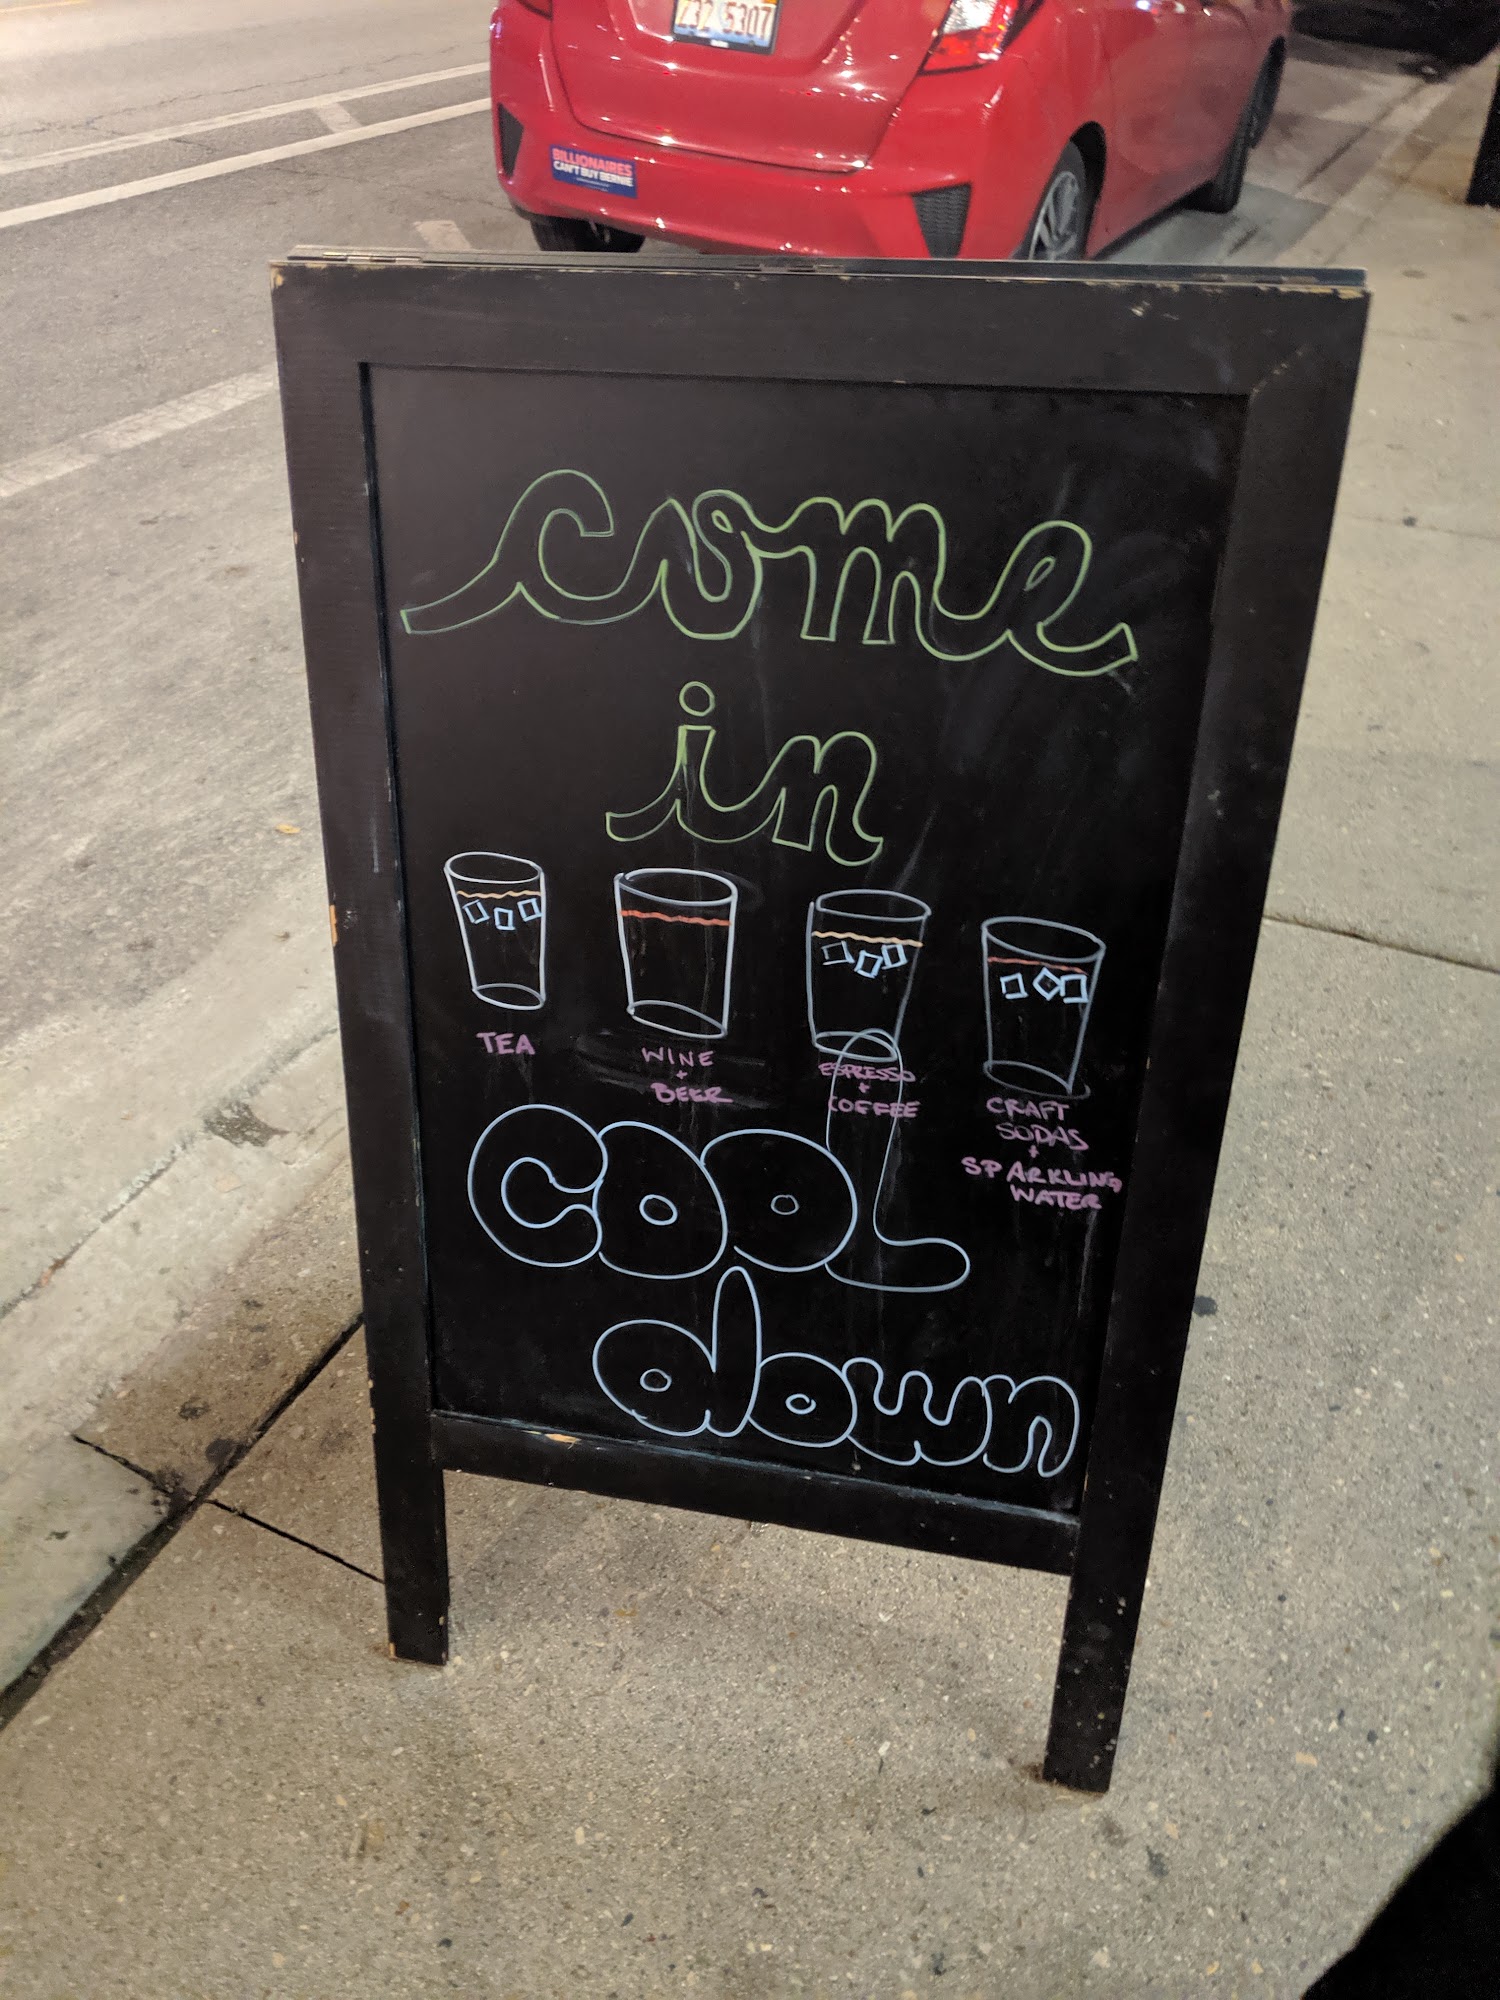 Z32 5307
BILLIONAIRES
CAN'T BUY BERNIE
come
in
TEA
WINE
+
BEER
ESPRESSO
+
COFFEE
CRAFT
SODAS
+
SPARKLING
WATER
COOL
down